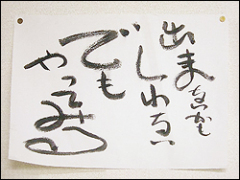 出来ないかも
しれない
でも
やってみる